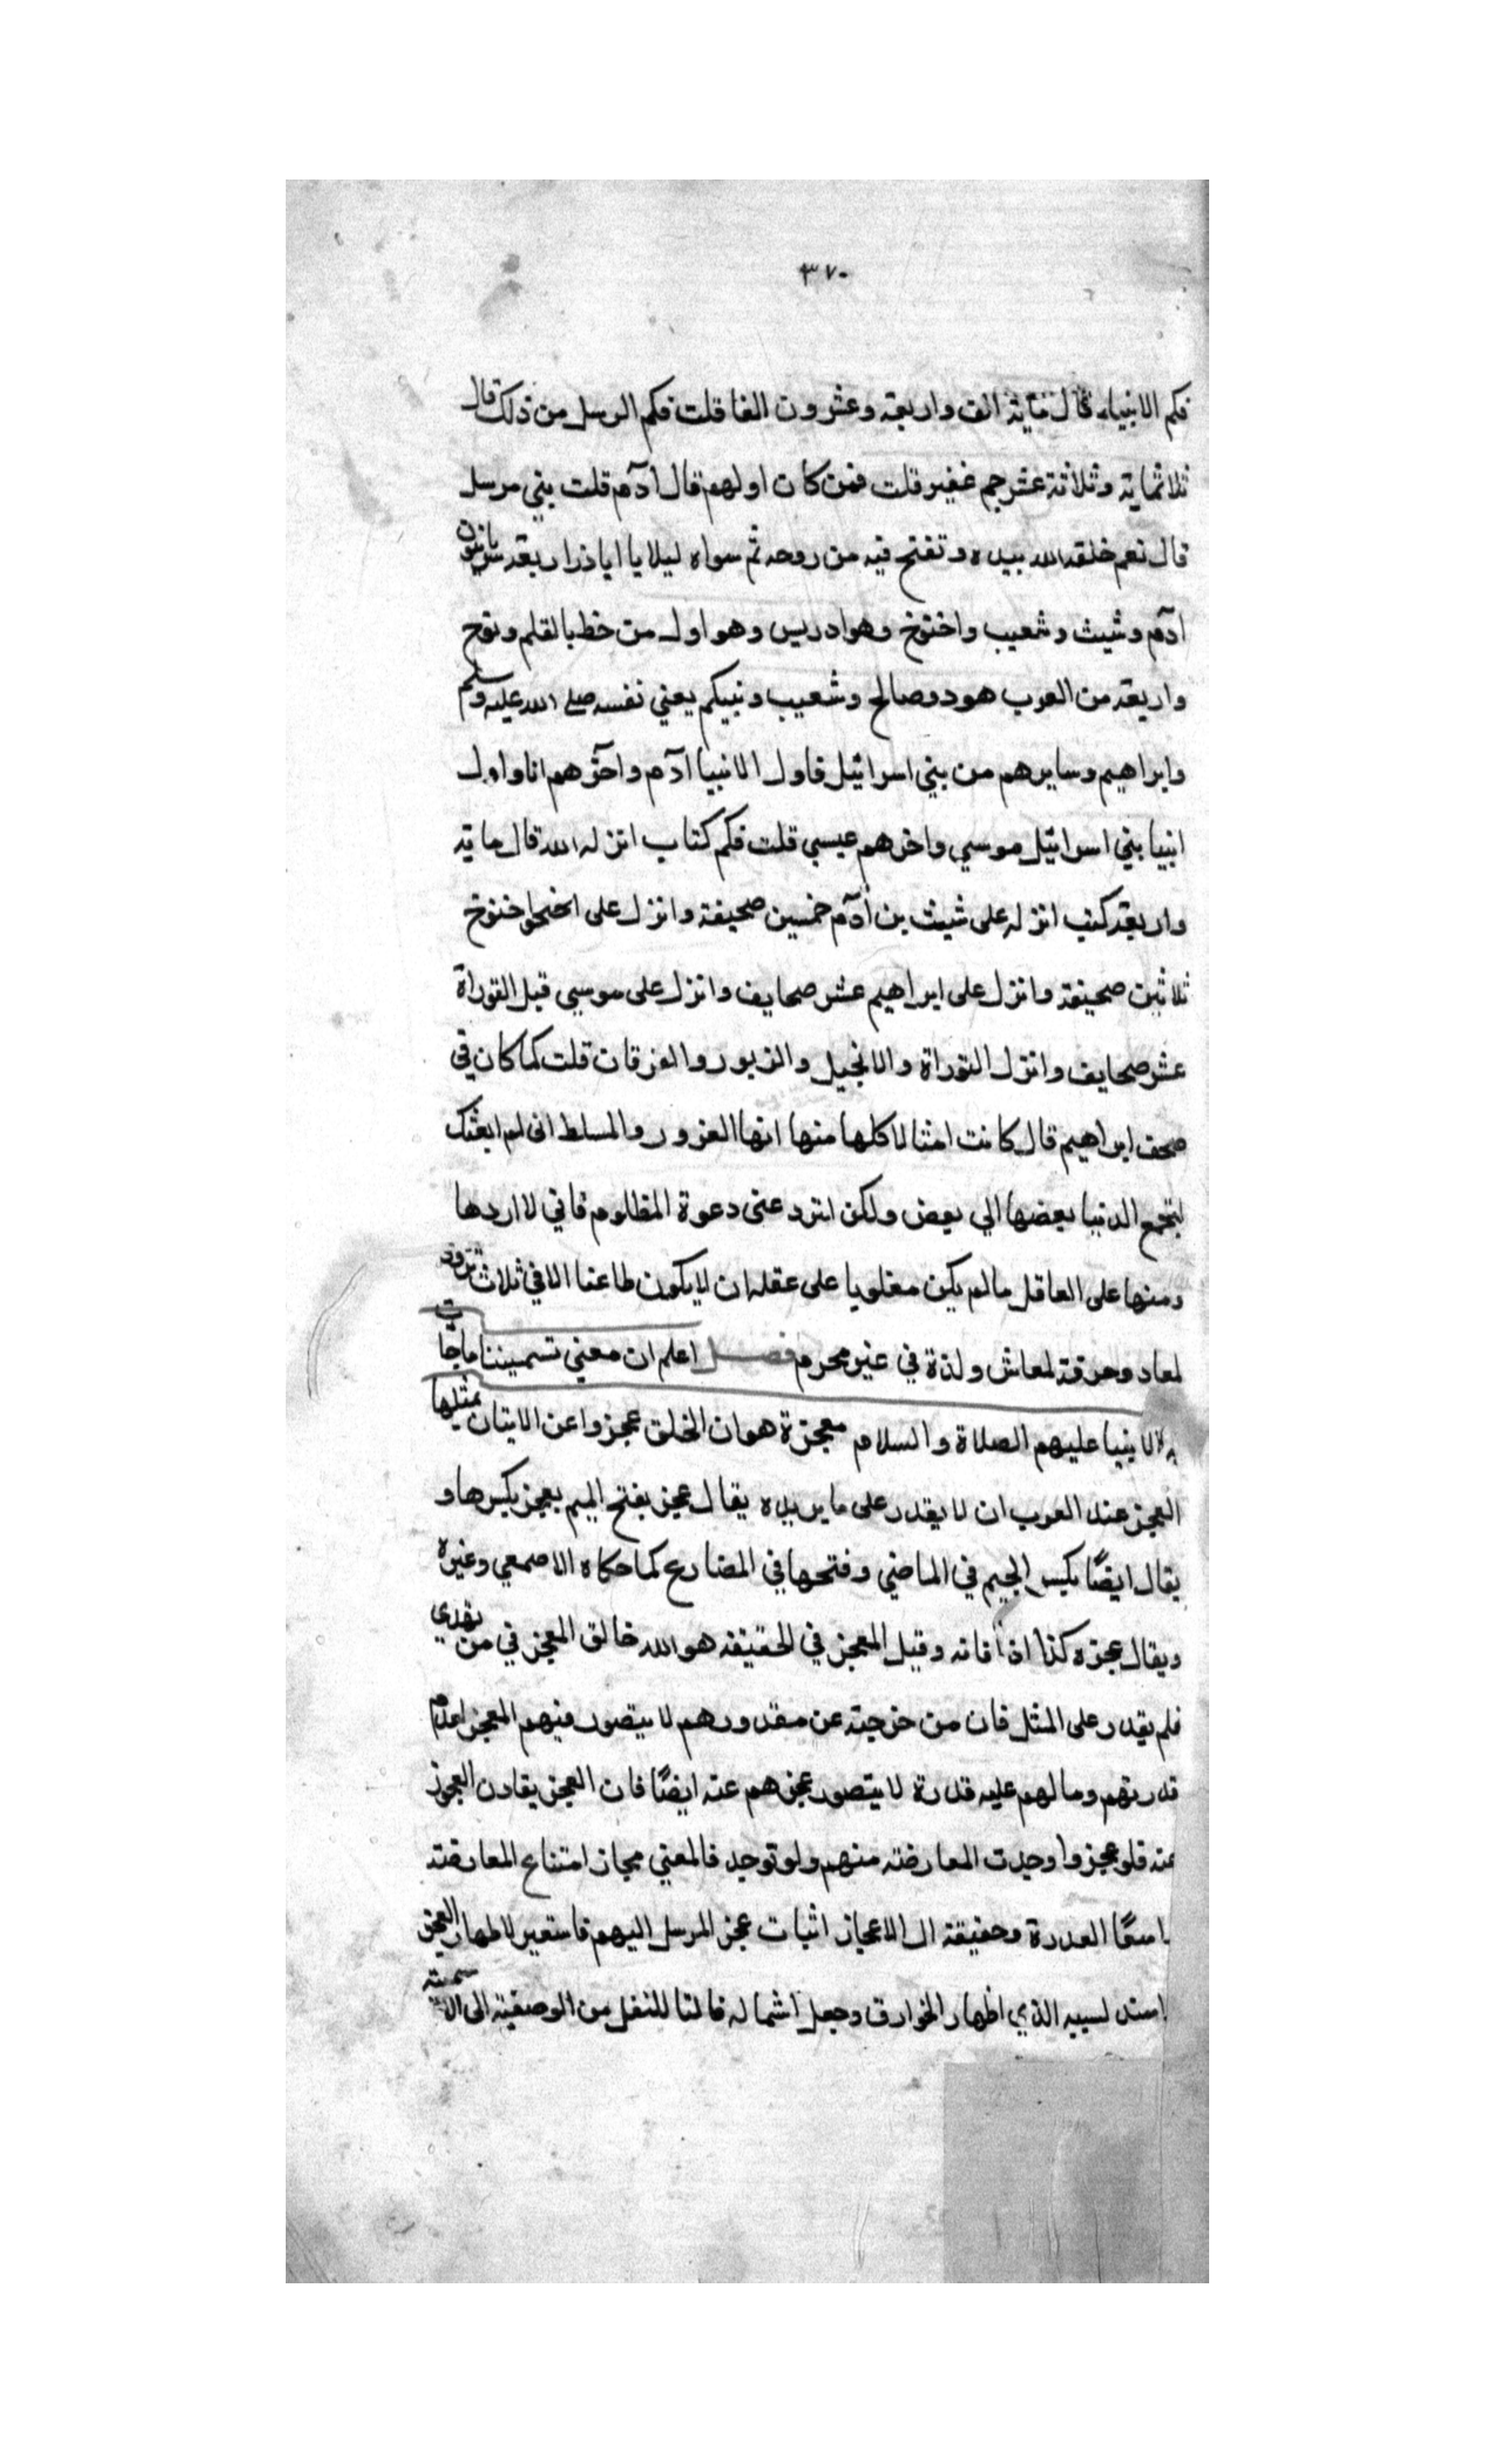 ٣٧٠
فكم الانبياء فقال ماية الف واربعة وعشرون الفا قلت فكم الرسل من ذلك قال
ثلاثماية وثلاثة عشر جم غفير قلت فمن كان اولهم قال ادم قلت بني مرسل
قال نعم خلقه الله بيده ونفخ فيه من روحه ثم سواه ليلا يا اباذر اربعة سريانيون
ادم وشيث وشعيب واخنوخ وهو ادريس وهو اول من خط بالقلم ونوح
واربعة من العرب هود وصالح وشعيب ونبيكم يعني نفسه صلى الله عليه وسلم
وابراهيم وسايرهم من بني اسرائيل فاول الانبيا آدم وآخرهم انا واول
انبيا بني اسرائيل موسي واخرهم عيسي قلت فكم كتاب انزله الله قال ماية
واربعة كتب انزله على شيث بن آدم خمسين صحيفة وانزل على اخنوخ
ثلاثين صحيفة وانزل على ابراهيم عشر صحايف وانزل على موسي قبل التوراة
عشر صحايف وانزل التوراة والانجيل والزبور والفرقان قلت كما كان في
صحف ابراهيم قال كانت امثالا كلها منها ايها الغرور والمسلط اني لم ابعثك
لتجمع الدنيا بعضها الي بعض ولكن لترد عني دعوة المظلوم فاني لا اردها
ومنها على العاقل مالم يكن مغلوبا على عقله ان لا يكون طاعنا الا في ثلاث تزود
لمعاد وحرفة لمعاش ولذة في غير محرم فصل اعلم ان معني تسميتنا ماجات
به الانبيا عليهم الصلاة والسلام معجزة هو ان الخلق عجزوا عن الاتيان بمثلها
العجز عند العرب ان لا يقدر على ما يريده يقال عجز بفتح الميم يعجز بكسرها و
يقال ايضًا بكسر الجيم في الماضي وفتحها في المضارع كما حكاه الاصمعي وغيره
ويقال عجزه كذا اذا فاته وقيل المعجز في الحقيقة هو الله خالق العجز في من
فلم يقدر على المثل فان من خرجية عن مقدورهم لا يتصور فيهم المعجز لعدم
قدرتهم ومالهم عليه قدرة لا يتصور عجزهم عنه ايضًا فان العجز يقارن العجوز
عنه فلو عجزوا وجدت المعارضة منهم ولو توجد فالمعني مجاز امتناع المعارضة
وحقيقة الاعجاز اثبات عجز المرسل اليهم فاستعير لاظهار العجز
اسند لسببه الذي اظهار الخوارق وجعل اسما له فالتا للنقل من الوصفية الى الاسمية